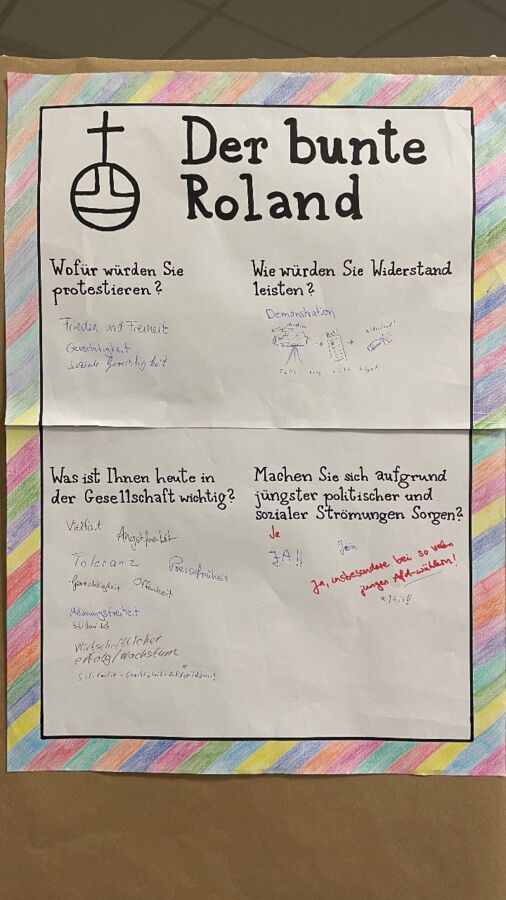 Der bunte
Roland
Wofür würden Sie
protestieren?
Frieden und Freiheit
Gerechtigkeit
soziale Gerechtigkeit
Wie würden Sie Widerstand
leisten?
Demonstration
Was ist Ihnen heute in
der Gesellschaft wichtig?
Vielfalt
Angstfreiheit
Toleranz
Pressefreiheit
Gerechtigkeit
Offenheit
Meinungsfreiheit
Solidarität
Wirtschaftlicher
erfolg/Wachstum
Machen Sie sich aufgrund
jüngster politischer und
sozialer Strömungen Sorgen?
Ja
JA!!
Jein
Ja, insbesondere bei so vielen
jungen AfD-wählern!